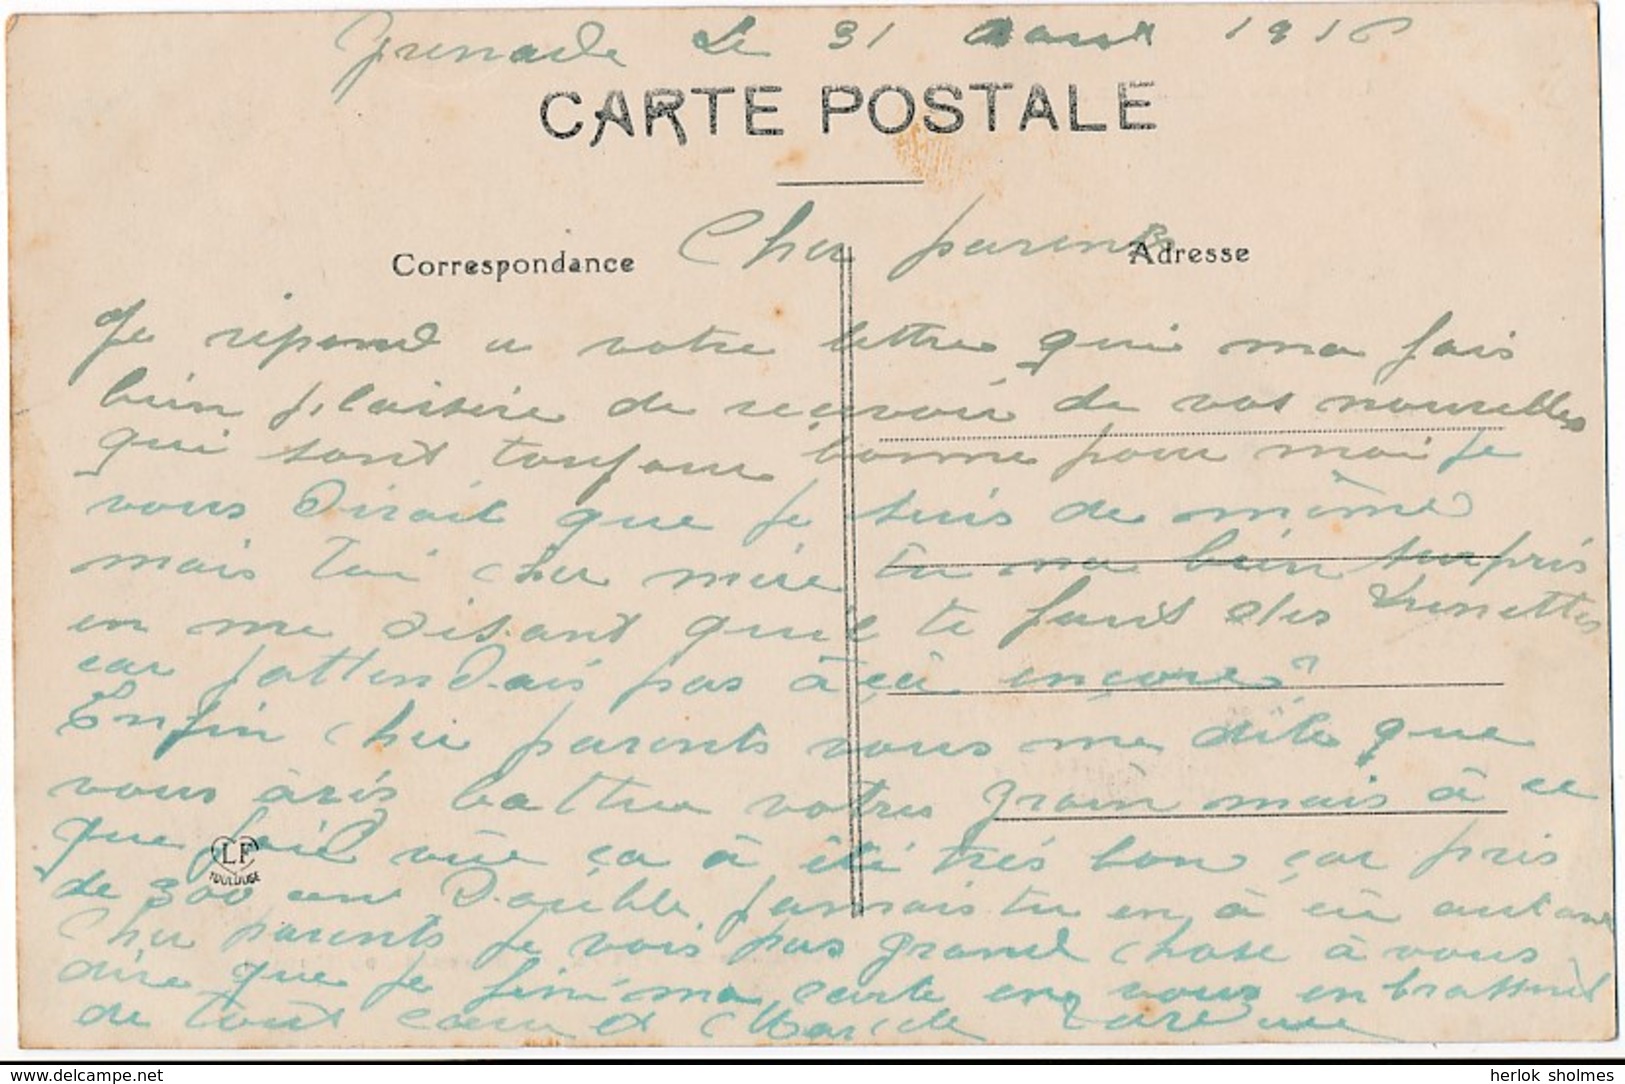 Grenade le 31 aout 1916
CARTE POSTALE
Correspondance
Cher parents
Adresse
Je répond a votre lettre qui ma fais
bien plaisire de recevoir de vos nouvelles
qui sont toujour bonne pour moi je
vous dirait que je suis de même
mais toi cher mère tu ma bien surpris
en me disant qu'il te faut des lunettes
car jattendais pas à ça encore
Enfin cher parents vous me dite que
vous avis battu votres grain mais à ce
que jai vue ça à été très bon car pris
de 300 cent Double jamais tu en à eu autant
Cher parents je vois pas grand chose à vous
dire que je fini ma carte en vous enbrassent
de tout cœur et Marcele
LF
TOULOUSE
herlok sholmes